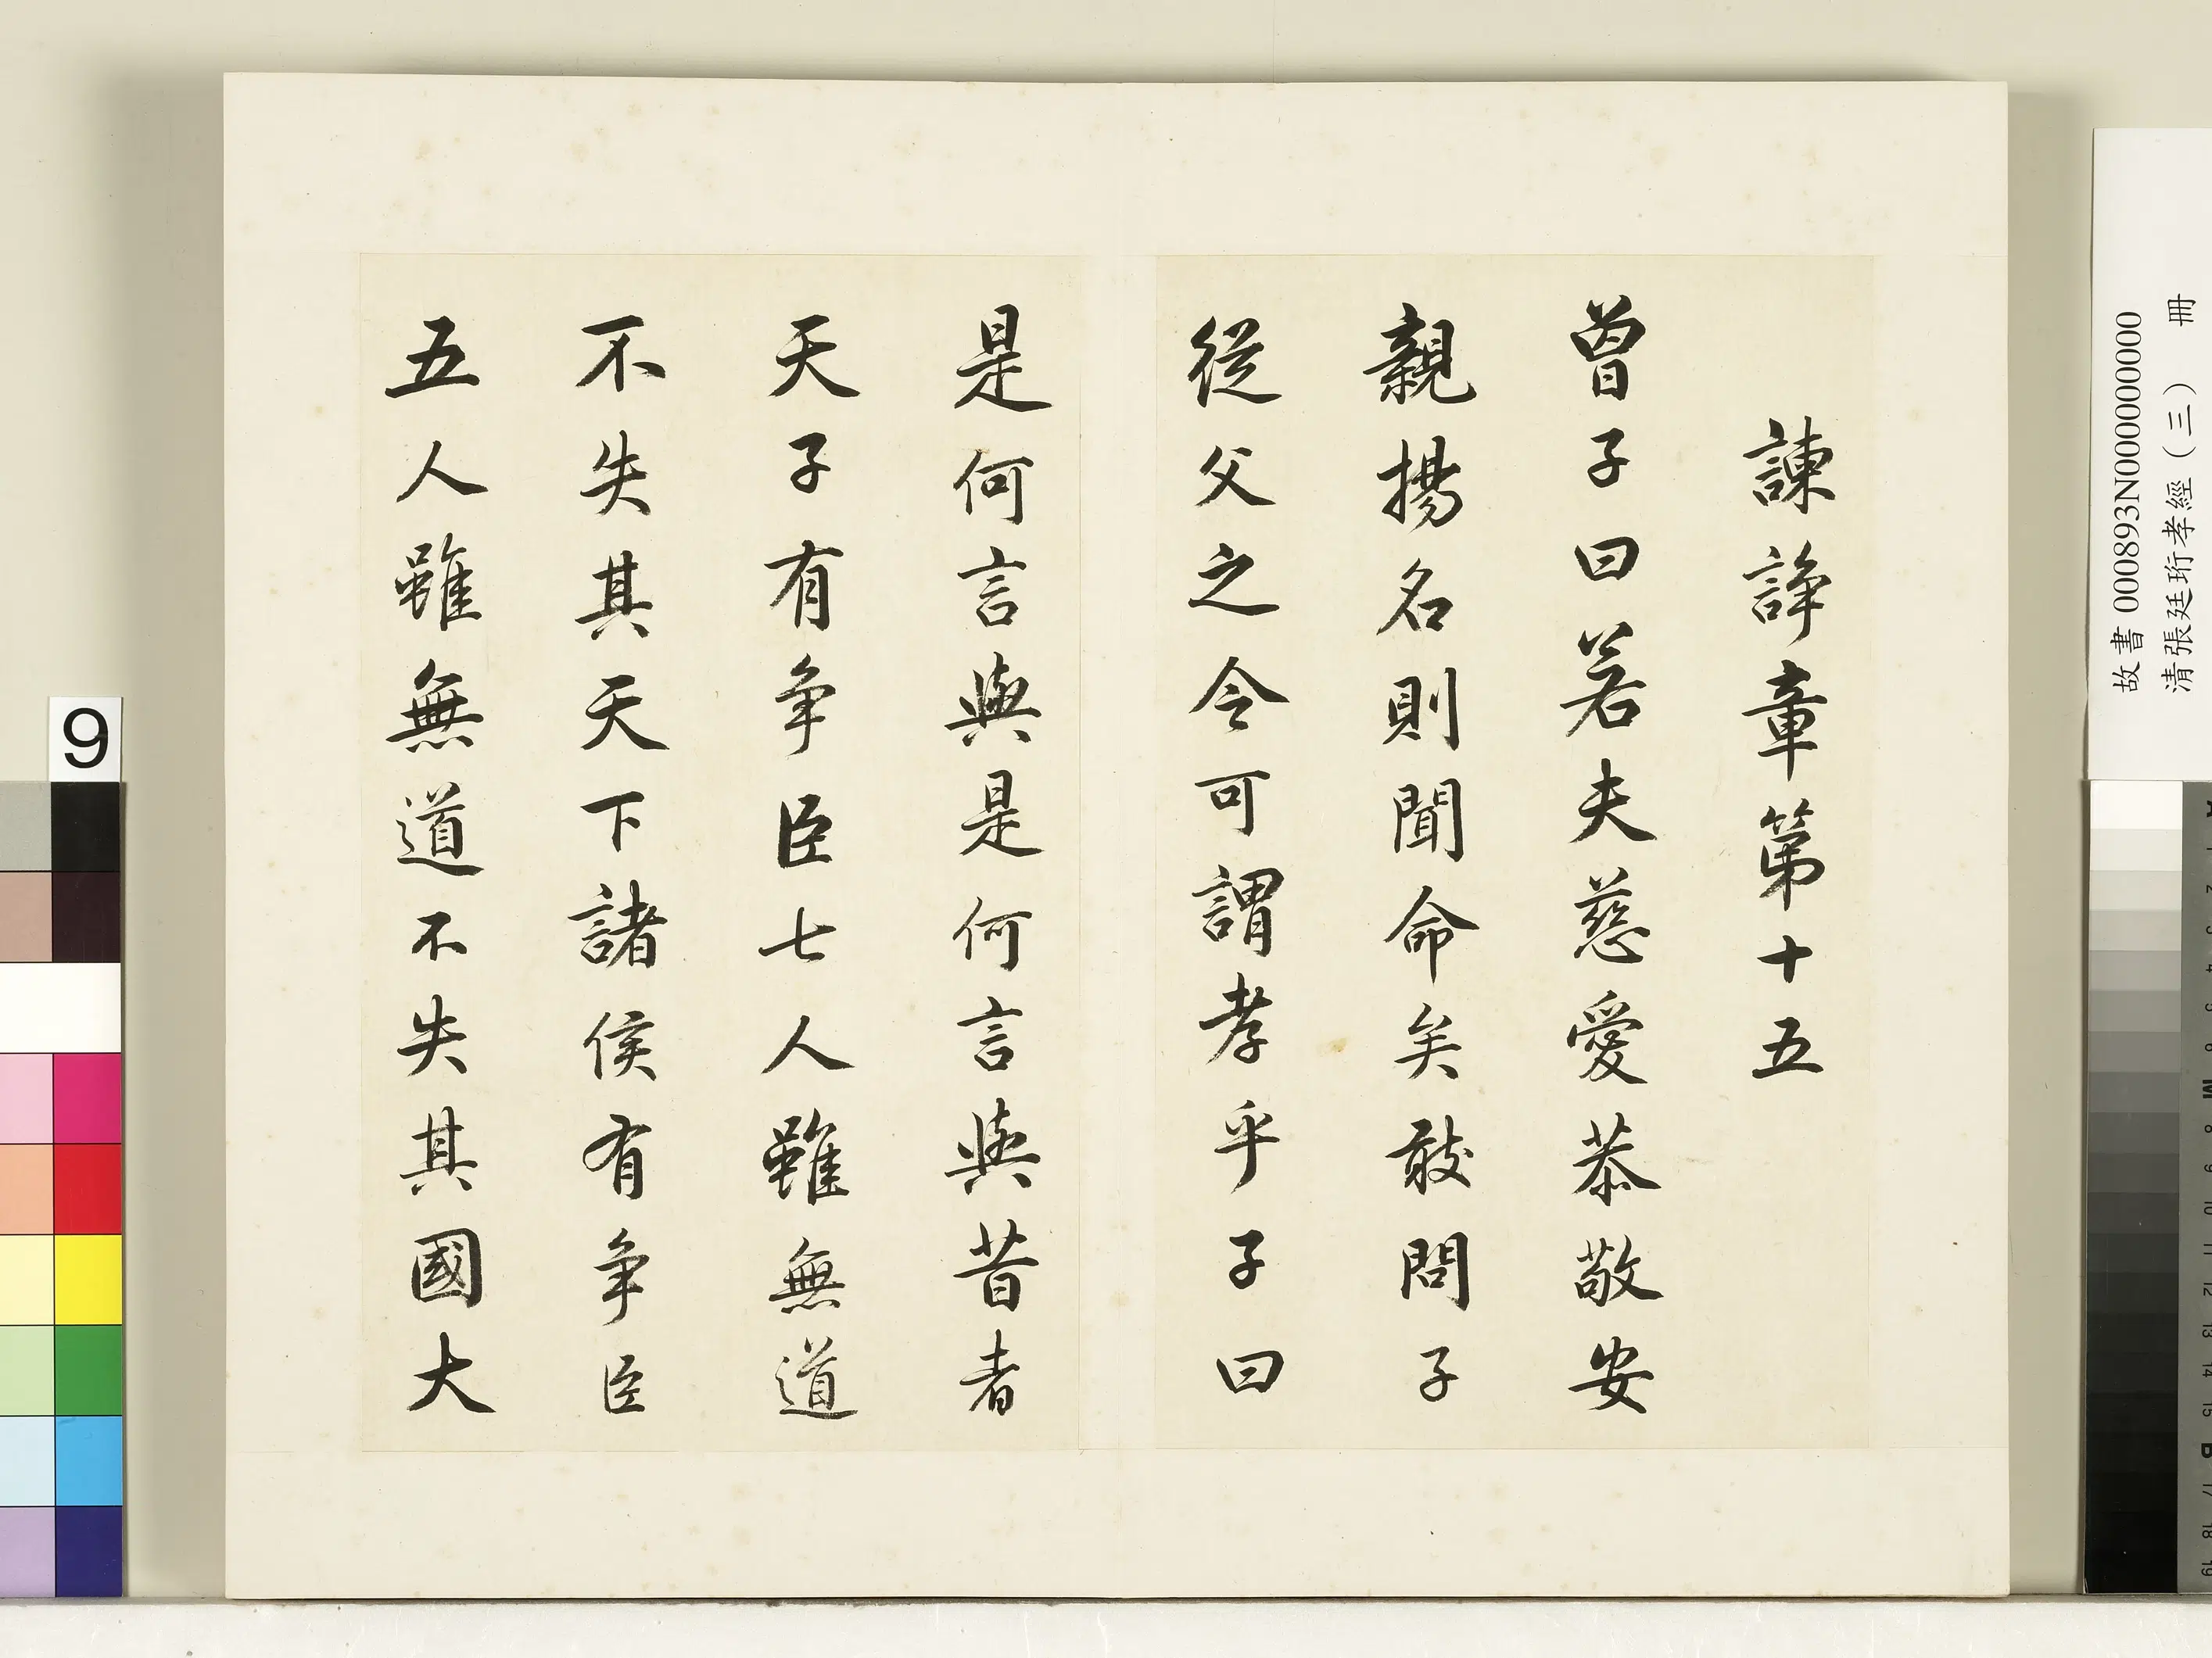 諫諍章第十五
曾子曰若夫慈愛恭敬安
親揚名則聞命矣敢問子
從父之令可謂孝乎子曰
是何言與是何言與昔者
天子有争臣七人雖無道
不失其天下諸侯有争臣
五人雖無道不失其國大
故書 000893N000000000
清張廷珩孝經(三) 冊
9